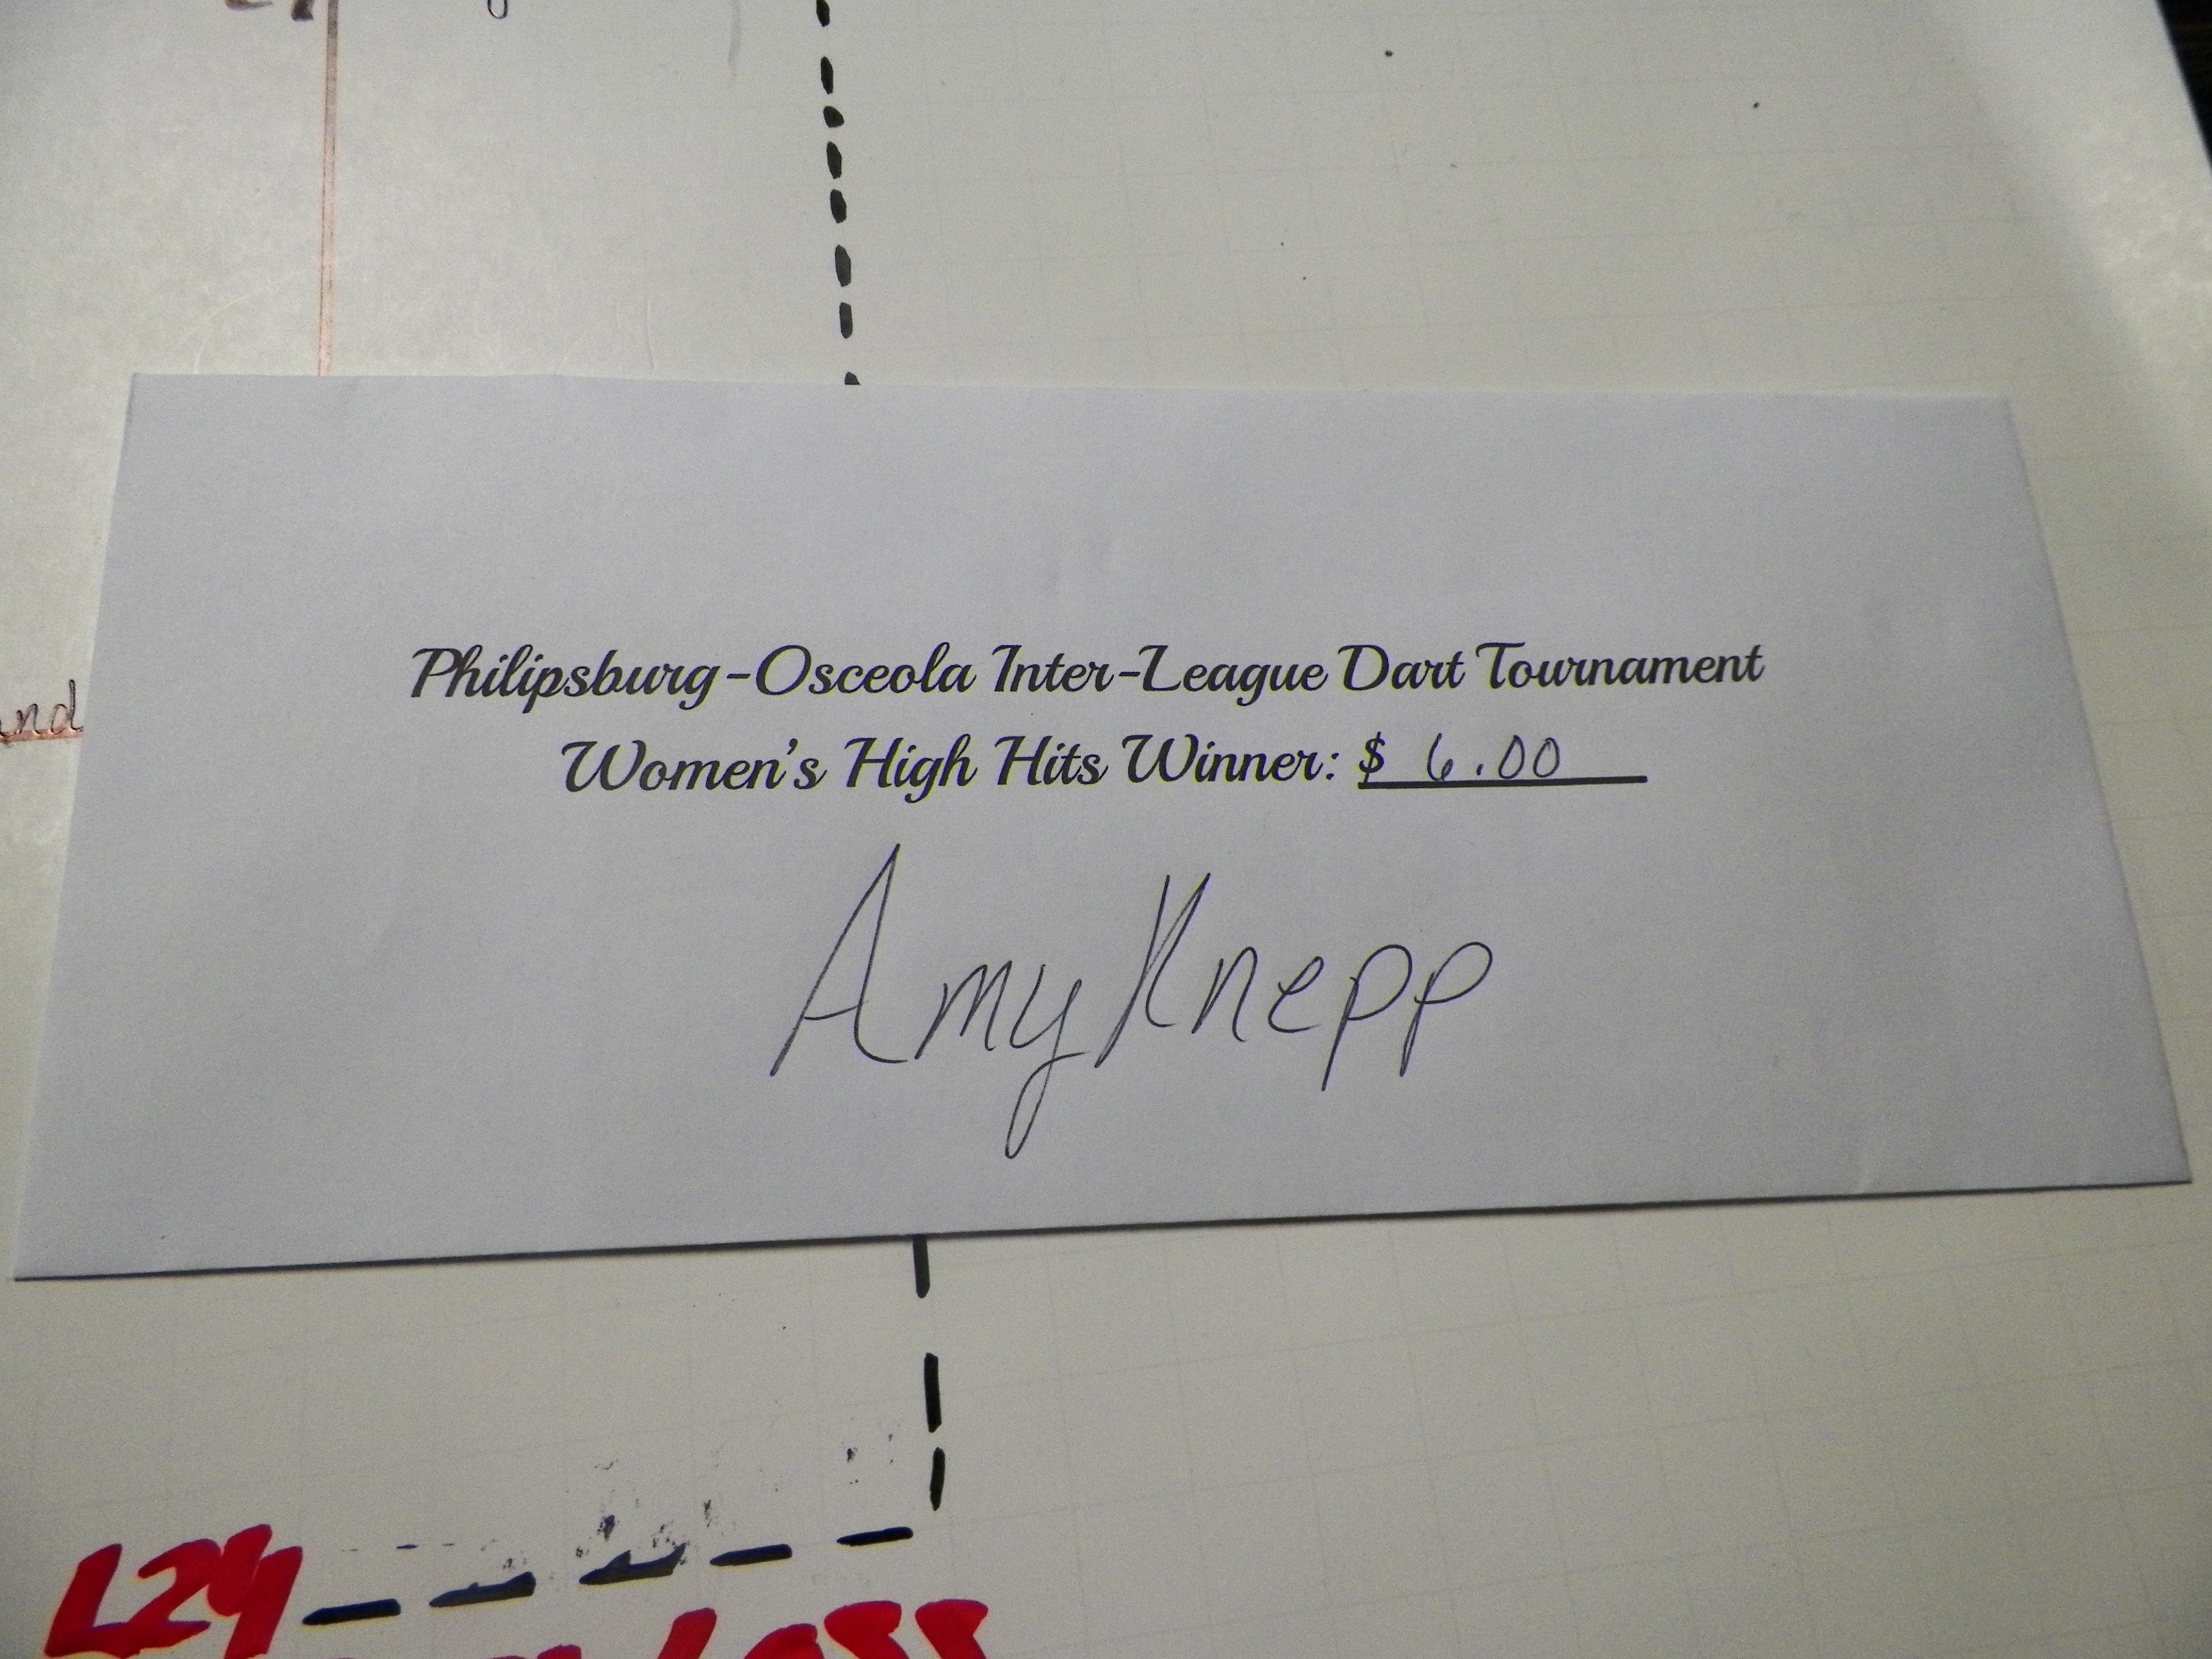 and
Philipsburg-Osceola Inter-League Dart Tournament
Women's High Hits Winner: $ 6.00
Amy Knepp
L24